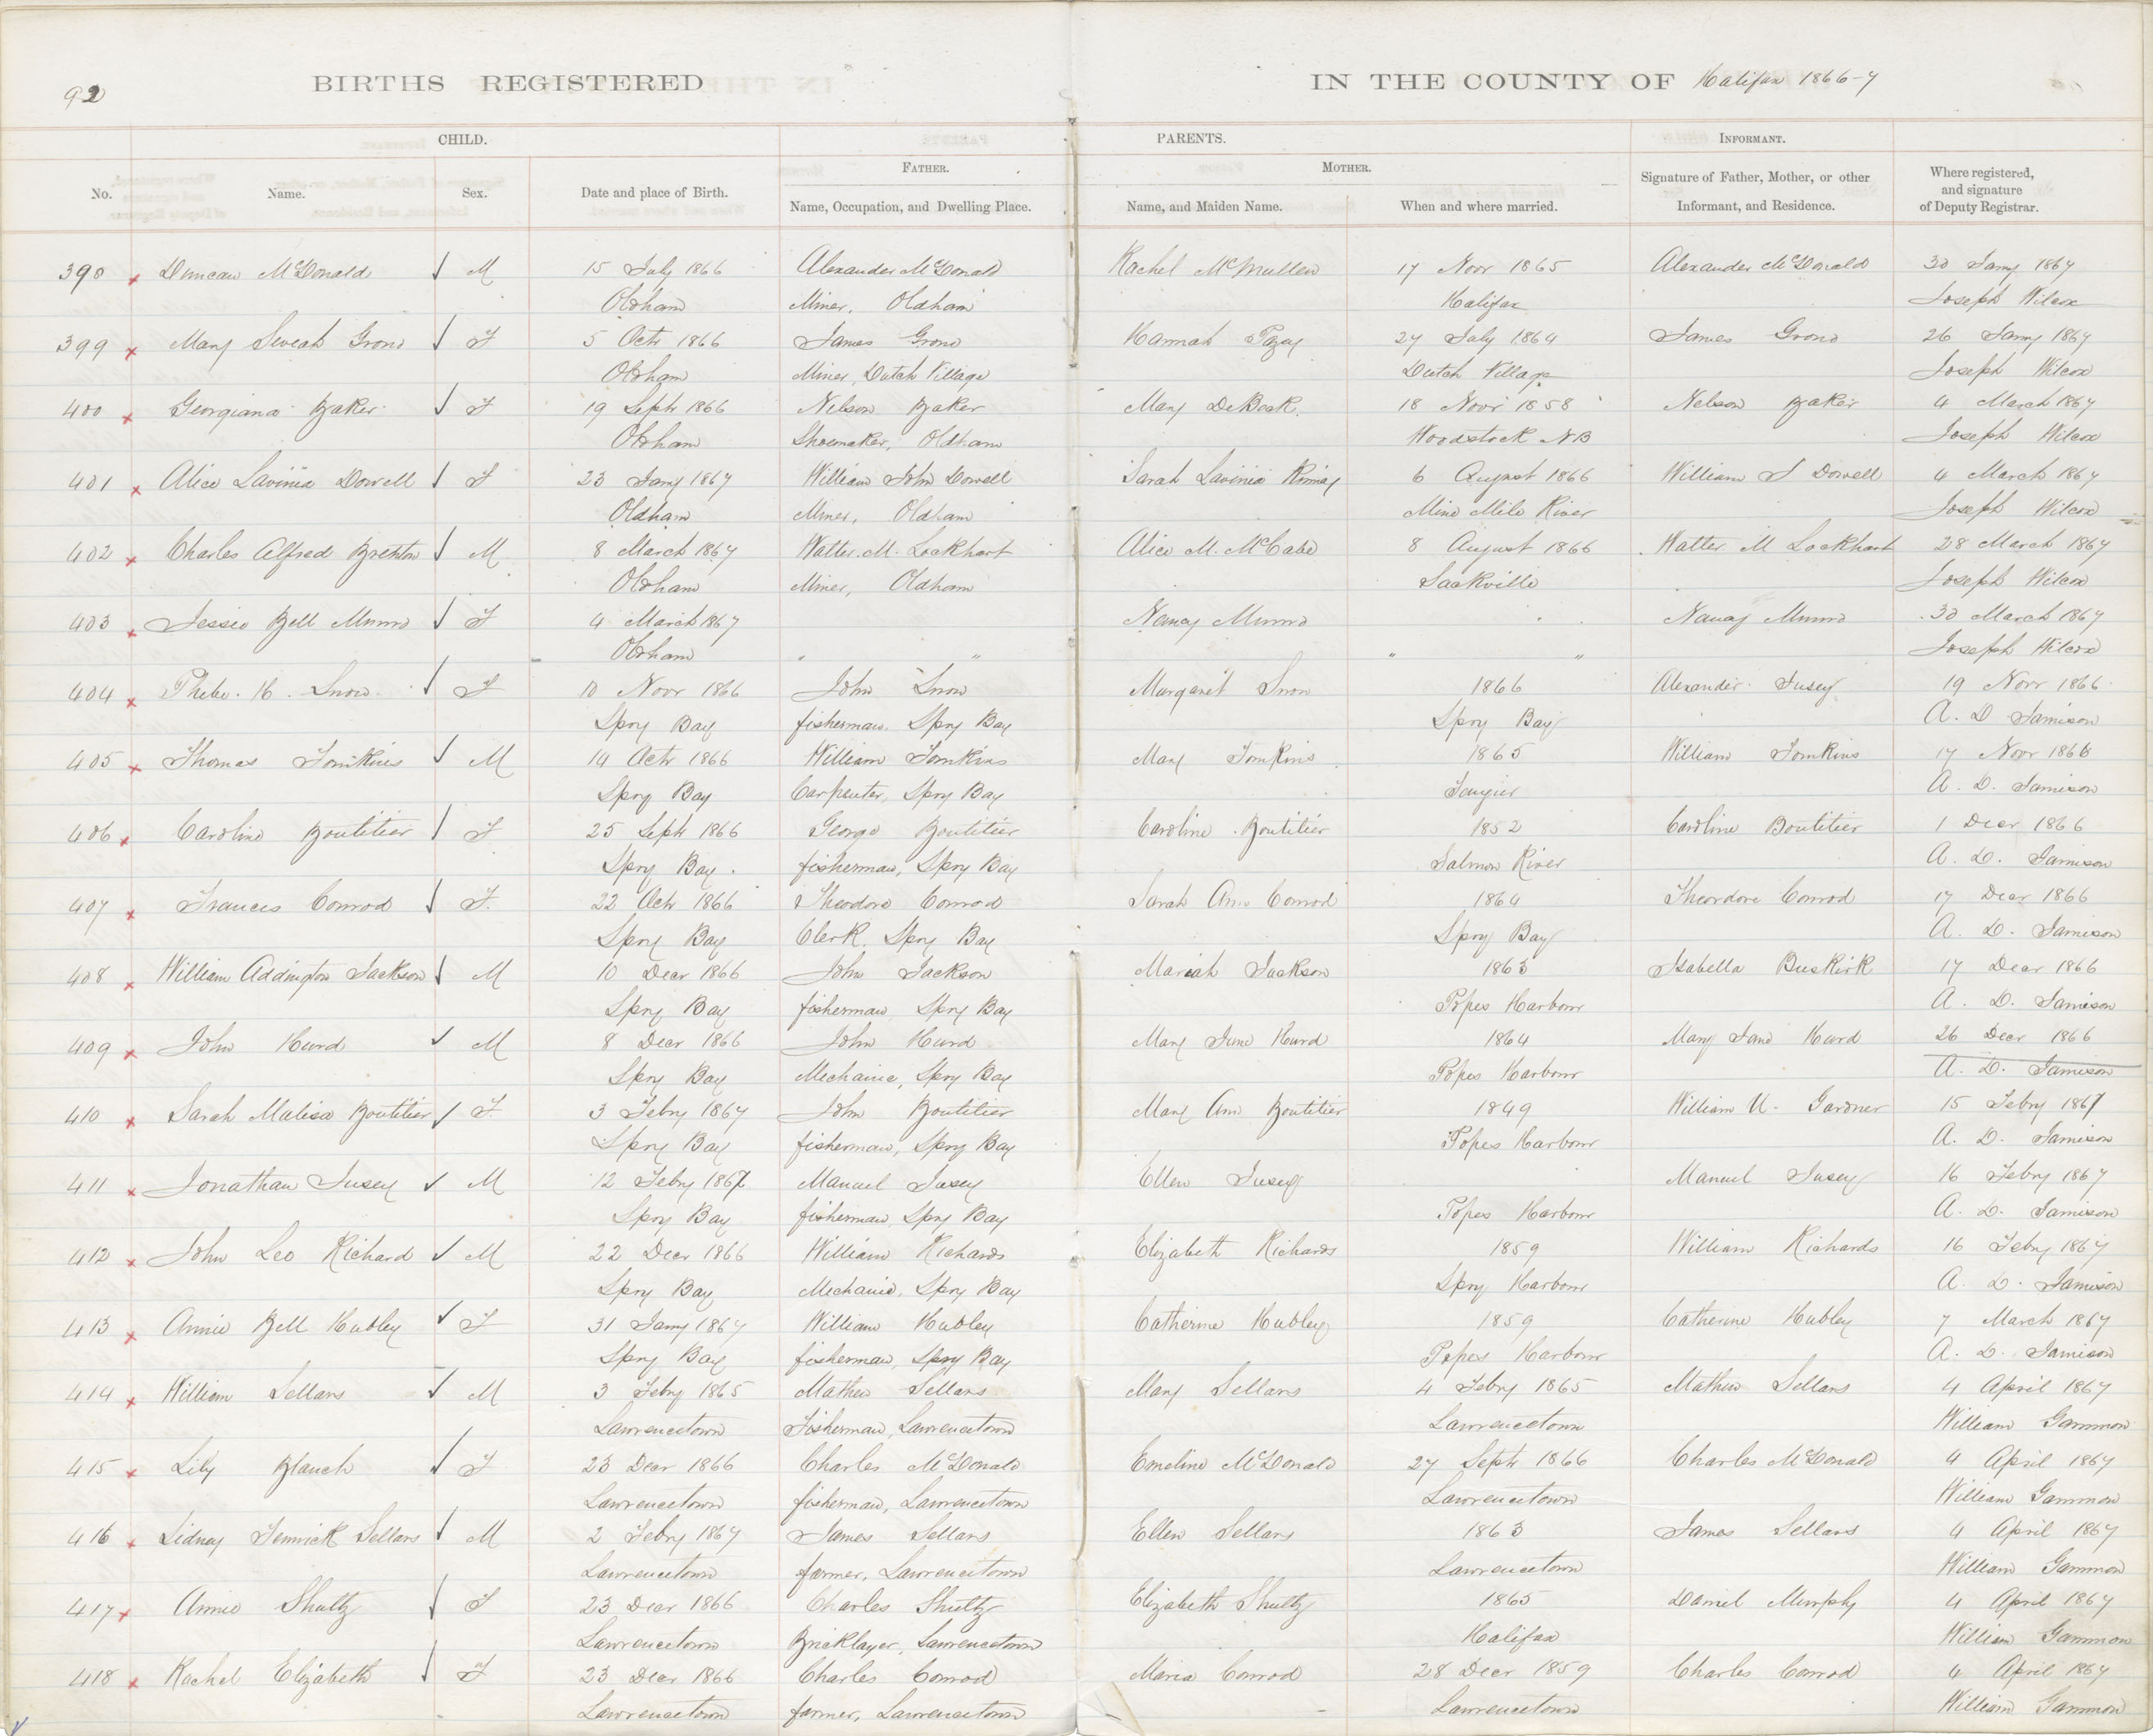 92
BIRTHS REGISTERED IN THE COUNTY OF Halifax 1866-7
CHILD. PARENTS. INFORMANT.
FATHER. MOTHER.
No. Name. Sex. Date and place of Birth. Name, Occupation, and Dwelling Place. Name, and Maiden Name. When and where married. Signature of Father, Mother, or other Informant, and Residence. Where registered, and signature of Deputy Registrar.
398 Duncan McDonald M 15 July 1866 Alexander McDonald Rachel McMullen 17 Novr 1865 Alexander McDonald 30 Jany 1867
Oldham Miner, Oldham Halifax Joseph Wilcox
399 Mary Grono F 5 Octr 1866 James Grono Hannah 27 July 1864 James Grono 26 Jany 1867
Oldham Miner, Dutch Village Dutch Village Joseph Wilcox
400 Georgiana Baker F 19 Septr 1866 Nelson Baker Mary 18 Novr 1858 Nelson Baker 4 March 1867
Oldham Shoemaker, Oldham Woodstock NB Joseph Wilcox
401 Alice Lavinia Dowell F 23 Jany 1867 William John Dowell Sarah Lavinia 6 August 1866 William J Dowell 4 March 1867
Oldham Miner, Oldham Nine Mile River Joseph Wilcox
402 Charles Alfred Brenton M 8 March 1867 Walter M. Lockhart Alice M. McCabe 8 August 1866 Walter M Lockhart 28 March 1867
Oldham Miner, Oldham Sackville Joseph Wilcox
403 Jessie Bell Munro F 4 March 1867 Nancy Munro Nancy Munro 30 March 1867
Oldham " " " " Joseph Wilcox
404 Phebe. H. Snow F 10 Novr 1866 John Snow Margaret Snow 1866 Alexander Jusey 19 Novr 1866
Spry Bay fisherman, Spry Bay Spry Bay A. D. Jamison
405 Thomas Tomkins M 14 Octr 1866 William Tomkins Mary Tomkins 1865 William Tomkins 17 Novr 1866
Spry Bay Carpenter, Spry Bay Tangier A. D. Jamison
406 Caroline Boutilier F 25 Septr 1866 George Boutilier Caroline Boutilier 1852 Caroline Boutilier 1 Decr 1866
Spry Bay fisherman, Spry Bay Salmon River A. D. Jamison
407 Frances Conrod F. 22 Octr 1866 Theodore Conrod Sarah Ann Conrod 1864 Theordore Conrod 17 Decr 1866
Spry Bay Clerk, Spry Bay Spry Bay A. D. Jamison
408 William Addington Jackson M 10 Decr 1866 John Jackson Mariah Jackson 1863 Isabella Buskirk 17 Decr 1866
Spry Bay fisherman, Spry Bay Popes Harbour A. D. Jamison
409 John Hurd M 8 Decr 1866 John Hurd Mary Jane Hurd 1864 Mary Jane Hurd 26 Decr 1866
Spry Bay Mechanic, Spry Bay Popes Harbour A. D. Jamison
410 Sarah Malisa Boutilier F 3 Febry 1867 John Boutilier Mary Ann Boutilier 1849 William U. Gardner 15 Febry 1867
Spry Bay fisherman, Spry Bay Popes Harbour A. D. Jamison
411 Jonathan Jusey M 12 Febry 1867 Manuel Jusey Ellen Jusey Manuel Jusey 16 Febry 1867
Spry Bay fisherman, Spry Bay Popes Harbour A. D. Jamison
412 John Leo Richard M 22 Decr 1866 William Richards Elizabeth Richards 1859 William Richards 16 Febry 1867
Spry Bay Mechanic, Spry Bay Spry Harbour A. D. Jamison
413 Annie Bell Hubley F 31 Jany 1867 William Hubley Catherine Hubley 1859 Catherine Hubley 7 March 1867
Spry Bay fisherman, Spry Bay Popes Harbour A. D. Jamison
414 William Sellars M 3 Febry 1865 Mathew Sellars Mary Sellars 4 Febry 1865 Mathew Sellars 4 April 1867
Lawrencetown Fisherman, Lawrencetown Lawrencetown William Gammon
415 Lily Blanch F 23 Decr 1866 Charles McDonald Emeline McDonald 27 Septr 1866 Charles McDonald 4 April 1867
Lawrencetown fisherman, Lawrencetown Lawrencetown William Gammon
416 Sidney Fenwick Sellars M 2 Febry 1867 James Sellars Ellen Sellars 1863 James Sellars 4 April 1867
Lawrencetown farmer, Lawrencetown Lawrencetown William Gammon
417 Annie Shultz F 23 Decr 1866 Charles Shultz Elizabeth Shultz 1865 Daniel Murphy 4 April 1867
Lawrencetown Bricklayer, Lawrencetown Halifax William Gammon
418 Rachel Elizabeth F 23 Decr 1866 Charles Conrod Maria Conrod 28 Decr 1859 Charles Conrod 4 April 1867
Lawrencetown farmer, Lawrencetown Lawrencetown William Gammon